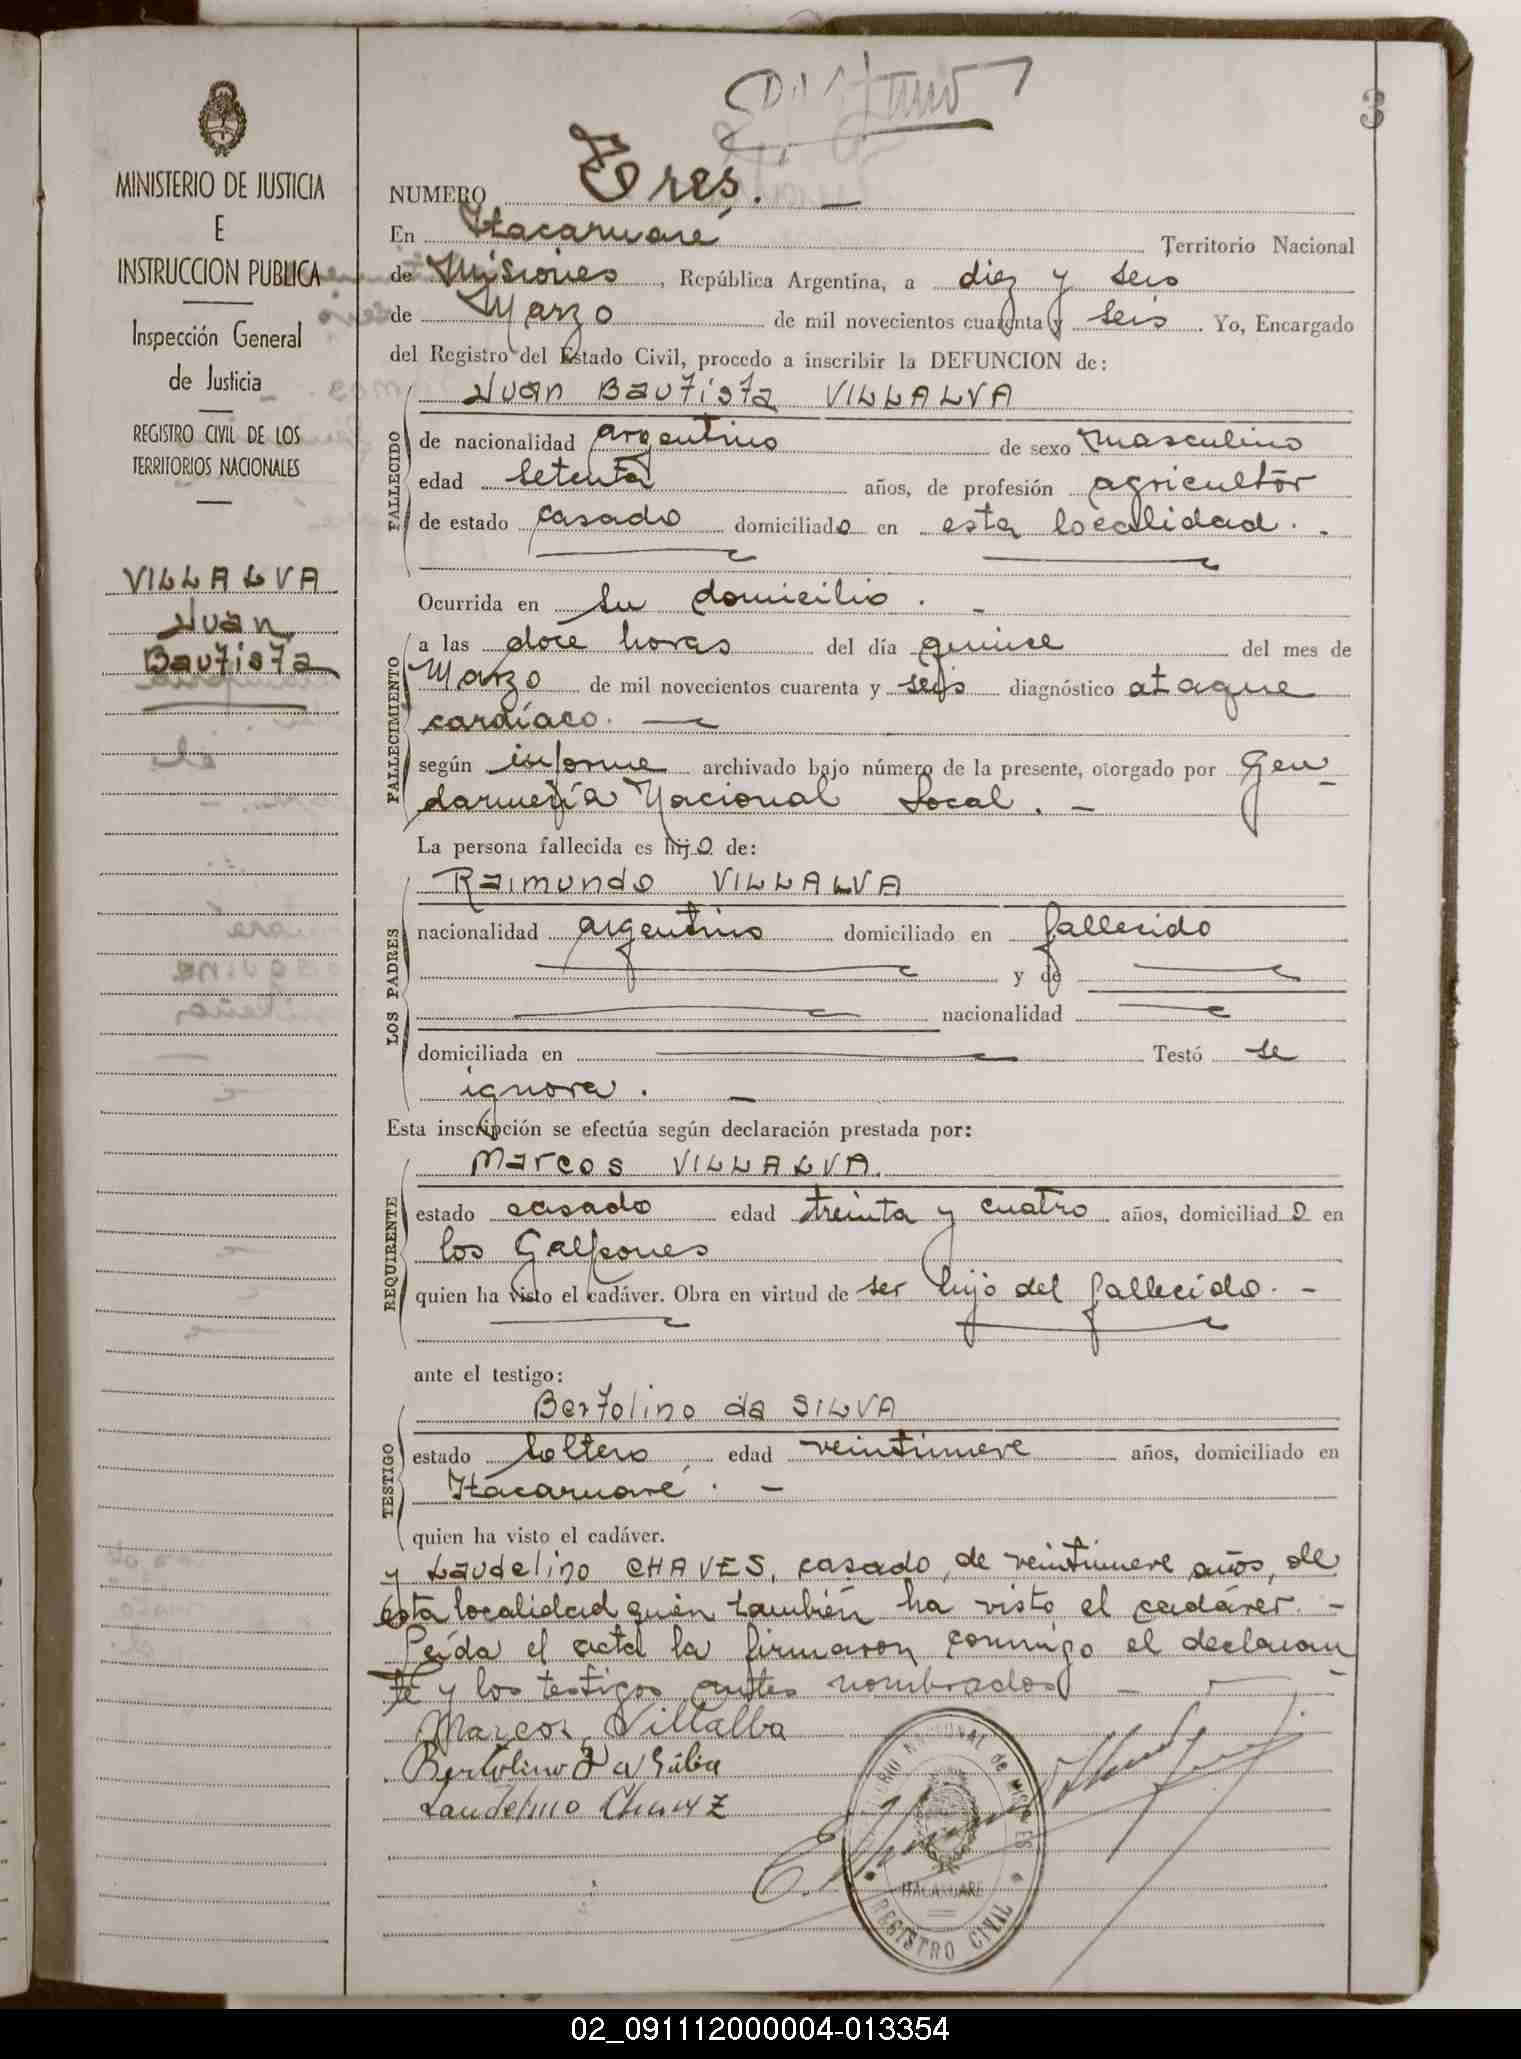 3
MINISTERIO DE JUSTICIA
E
INSTRUCCION PUBLICA
Inspección General
de Justicia
REGISTRO CIVIL DE LOS
TERRITORIOS NACIONALES
VILLALVA
Juan
Bautista
NUMERO Tres.
En Itacaruaré Territorio Nacional
de Misiones, República Argentina, a diez y seis
de Marzo de mil novecientos cuarenta y seis. Yo, Encargado
del Registro del Estado Civil, procedo a inscribir la DEFUNCION de:
FALLECIDO
Juan Bautista VILLALVA
de nacionalidad argentino de sexo masculino
edad setenta años, de profesión agricultor
de estado casado domiciliado en esta localidad. -
Ocurrida en su domicilio. -
FALLECIMIENTO
a las doce horas del día quince del mes de
Marzo de mil novecientos cuarenta y seis diagnóstico ataque
cardíaco. —
según informe archivado bajo número de la presente, otorgado por Gen-
darmería Nacional Local. -
La persona fallecida es hijo de:
LOS PADRES
Raimundo VILLALVA
nacionalidad argentino domiciliado en fallecido
y de
nacionalidad
domiciliada en Testó se
ignora. -
Esta inscripción se efectúa según declaración prestada por:
REQUIRENTE
Marcos VILLALVA.
estado casado edad treinta y cuatro años, domiciliado en
los Galpones
quien ha visto el cadáver. Obra en virtud de ser hijo del fallecido. -
ante el testigo:
TESTIGO
Bertolino da SILVA
estado soltero edad veintinueve años, domiciliado en
Itacaruaré. -
quien ha visto el cadáver.
y Laudelino CHAVES, casado, de veintinueve años, de
esta localidad quien también ha visto el cadáver. -
Leída el acta la firmaron conmigo el declaran-
te y los testigos antes nombrados -
Marcos Villalba
Bertolino Da Silva
Laudelino Chavez
ITACARUARE
REGISTRO CIVIL
02_091112000004-013354